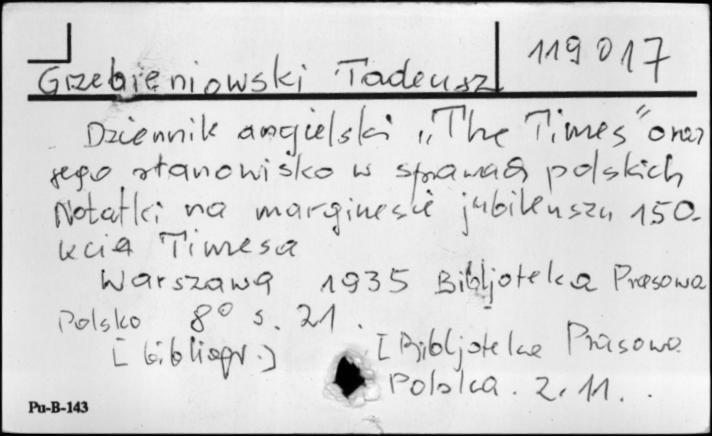 119017
Grzebieniowski Tadeusz
Dziennik angielski „The Times" oraz
jego stanowisko w sprawach polskich
Notatki na marginesie jubileuszu 150-
lecia Timesa
Warszawa 1935 Bibljoteka Prasowa
Polska 8° s. 21.
[bibliogr.] [Bibljoteka Prasowa
Polska. 2.11.
Pu-B-143